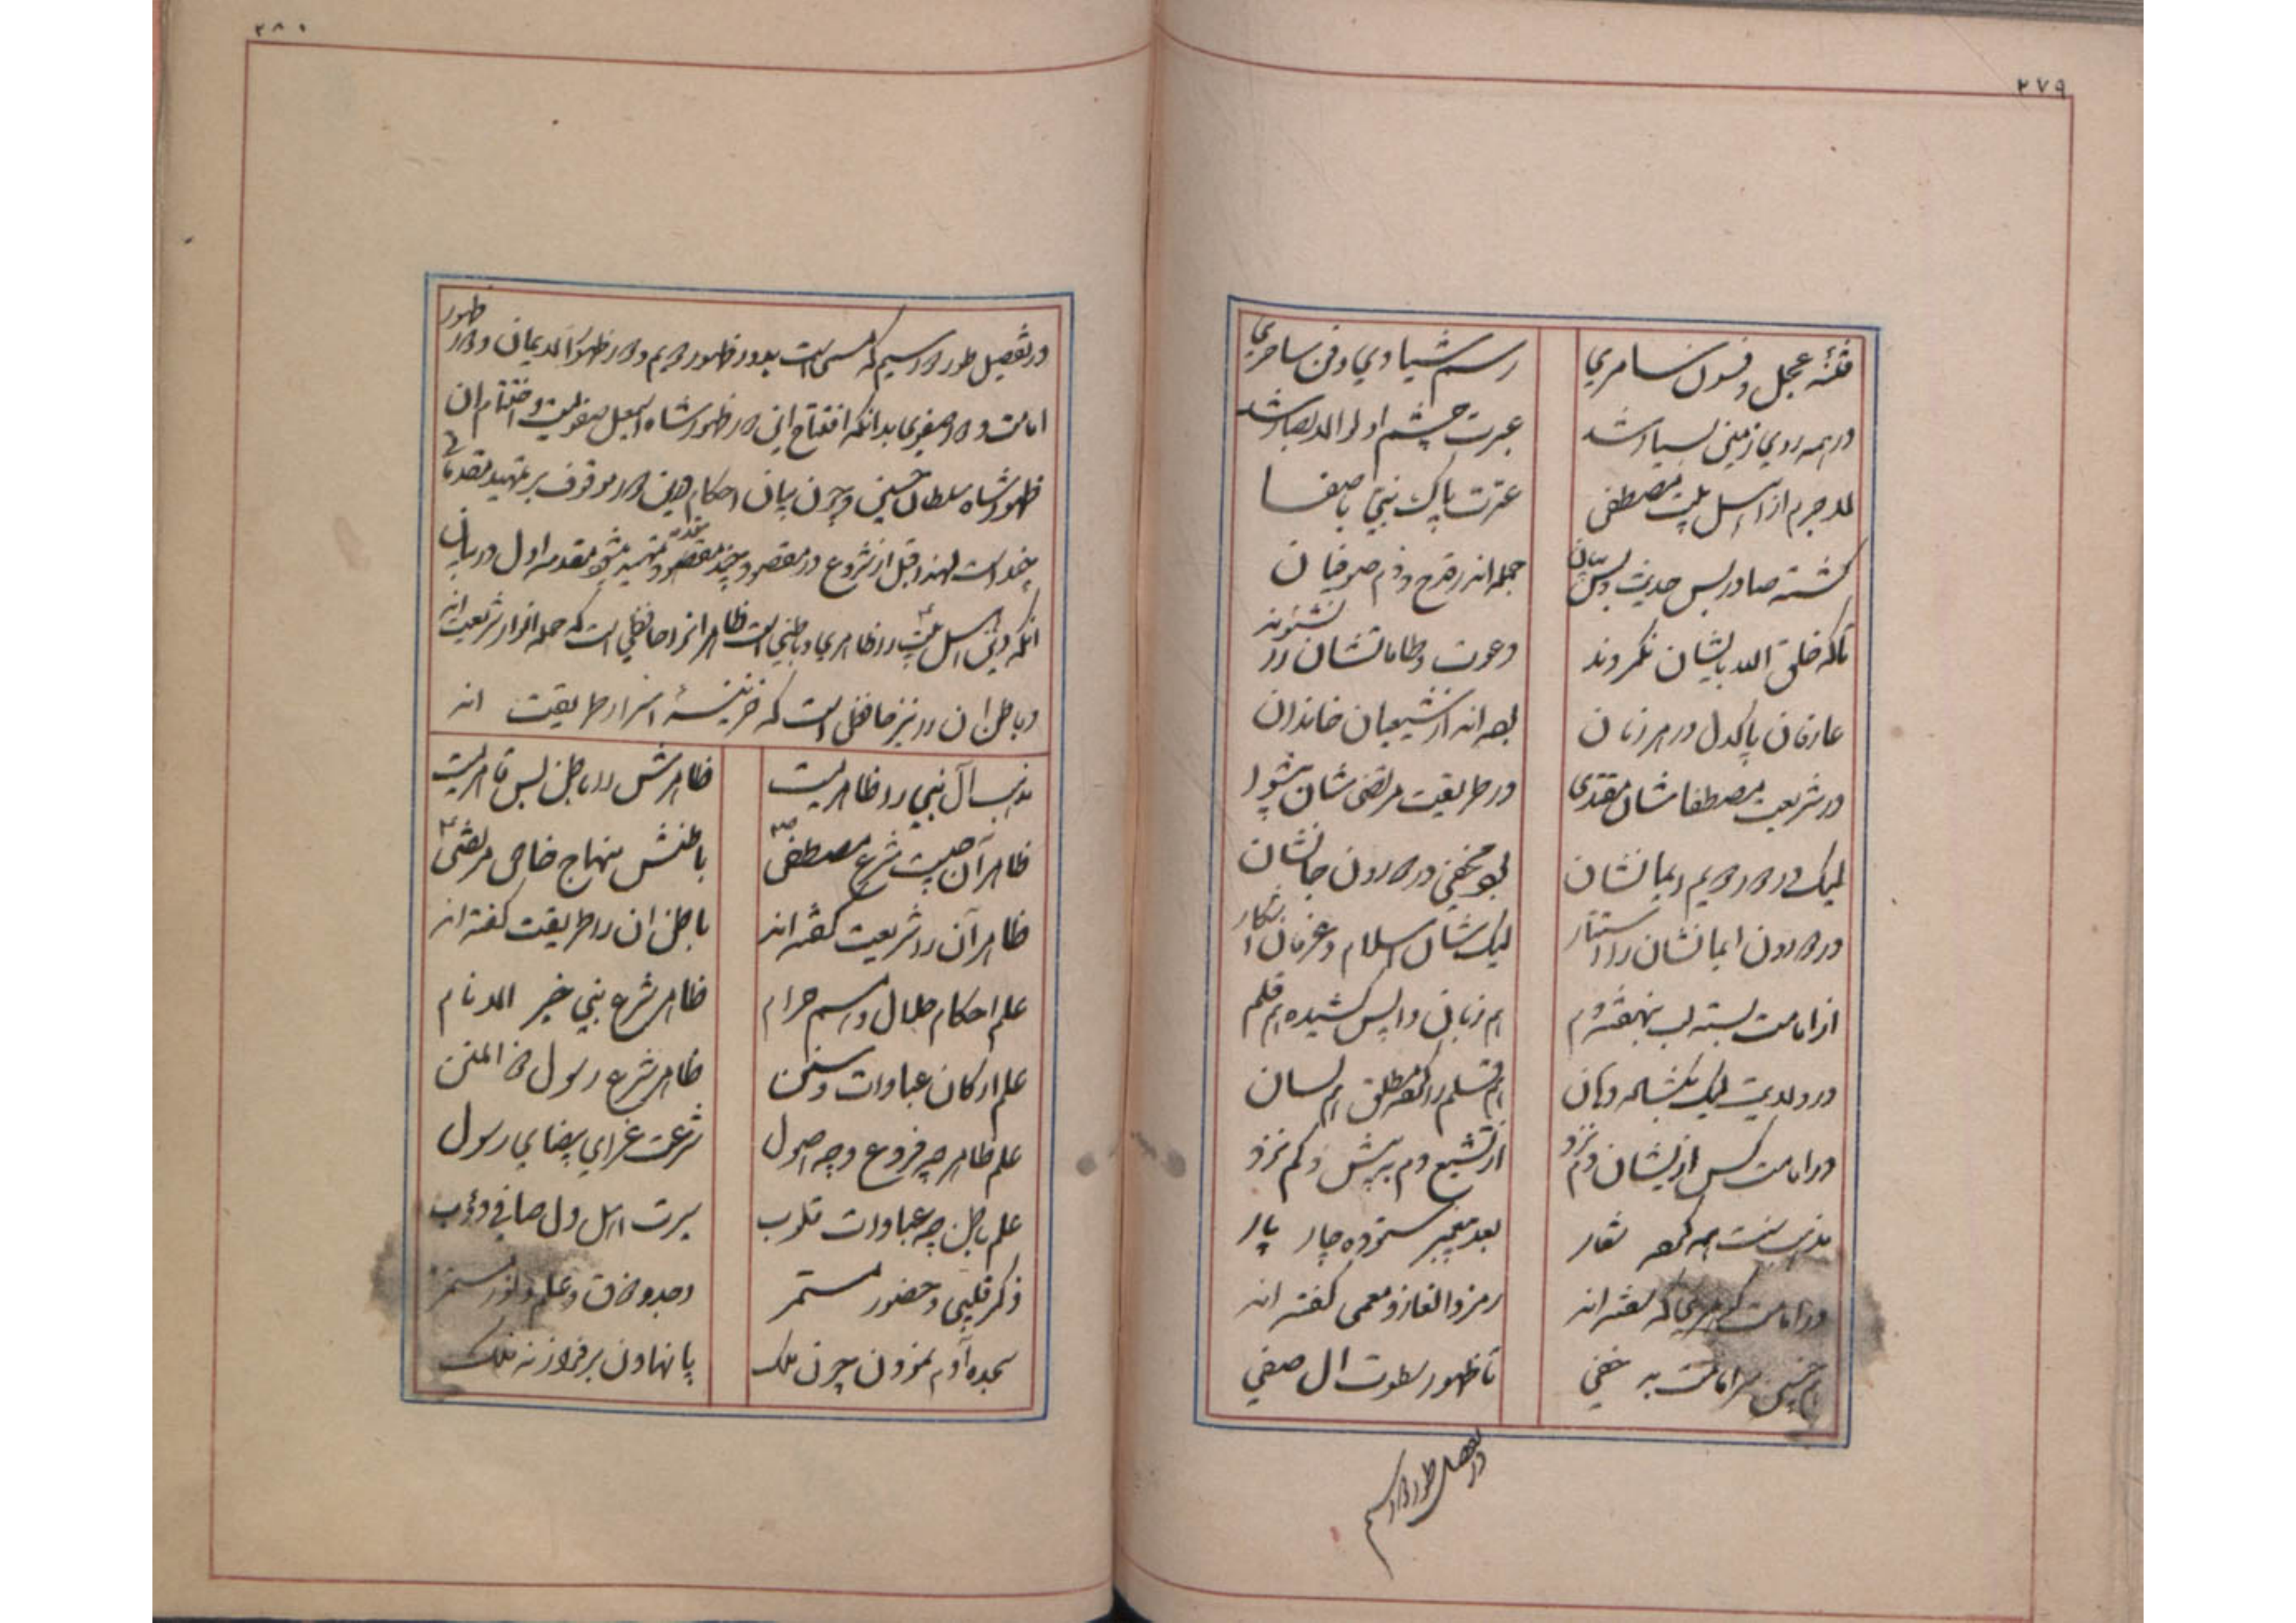 ۲۷۹
فتنهٔ عجل و فسون سامری
رسم شیادی و فن ساحری
در همه روی زمین بسیار شد
عبرت چشم اولوالابصار شد
لاجرم از اهل بیت مصطفی
عترت پاک نبی باصفا
گشته صادر بس حدیث
جمله اندر قدح و ذم صوفیان
تا که خلق الله بایشان نگروند
دعوت و طاماتشان را نشنوند
عارفان پاکدل در هر زمان
بوده‌اند از شیعیان خاندان
در شریعت مصطفاشان مقتدی
در طریقت مرتضی‌شان پیشوا
لیک در دور دویم ایمانشان
بود مخفی در درون جانشان
در درون ایمانشان را استتار
لیک‌شان اسلام و عرفان آشکار
از امامت بسته لب بنهفته دم
هم زبان واپس کشیده هم قلم
در ولایت لیک بگشاده دهان
هم قلم را کرده مطلق هم لسان
در امامت کس از ایشان دم نزد
از تشیع دم ببیش و کم نزد
مذهب سنت همه کرده شعار
بعد پیغمبر ستوده چار یار
در امامت گر مدیحی که گفته‌اند
رمز و الغاز و معمی گفته‌اند
سر امامت بد خفی
تا ظهور سطوت آل صفی
در تفصیل طور دور سیم
۲۸۰
در تفصیل طور دور سیم که مسمی است بدور ظهور دویم و دور ظهور الایمان و دور ظهور
امامت و دور صفوی بدانکه افتتاح این دور ظهور شاه اسمعیل صفویست و اختتام آن
ظهور شاه سلطان حسین و چون بیان احکام این دور موقوف بر تمهید مقدماتی
چند است لهذا قبل از شروع در مقصود چند مقدمه تمهید میشود مقدمه اول در بیان
آنکه دین اهل بیت را ظاهری و باطنی است ظاهر آنرا حافظی است که حمله اسرار شریعت‌اند
و باطن آن را نیز حافظی است که خزینهٔ اسرار طریقت‌اند
مذهب آل نبی را ظاهریست
ظاهرش را باطن بس قاهریست
ظاهر آن چیست شرع مصطفی ص
باطنش منهاج خاص مرتضی ع
ظاهر آن را شریعت گفته‌اند
باطن آن را طریقت گفته‌اند
علم احکام حلال و هم حرام
ظاهر شرع نبی خیر الانام
علم ارکان عبادات و سنن
ظاهر شرع رسول ذو المنن
علم ظاهر چه فروع و چه اصول
شرعت غرای بیضای رسول
علم باطن چه عبادات قلوب
سیرت اهل دل صافی
ذکر قلبی و حضور مستمر
وجد و ذوق و علم و نور مستمر
سجده آدم نمودن چون ملک
پا نهادن بر فراز نه فلک